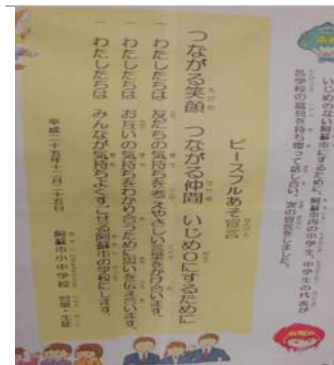 いじめのない阿蘇市にするために、阿蘇市内の小学生、中学生の代表が
各学校の意見を持ち寄って話し合い、次の宣言をしました。
ピースフルあそ宣言
つながる笑顔 つながる仲間 いじめ0にするために
一 わたしたちは 友だちの気持ちを考えやさしい言葉をかけ合います。
一 わたしたちは お互いの気持ちをわかり合うために思いを伝え合います。
一 わたしたちは みんなが気持ちよくすごせる阿蘇市の学校にします。
平成二十五年十二月二十五日
阿蘇市小中学校 児童・生徒